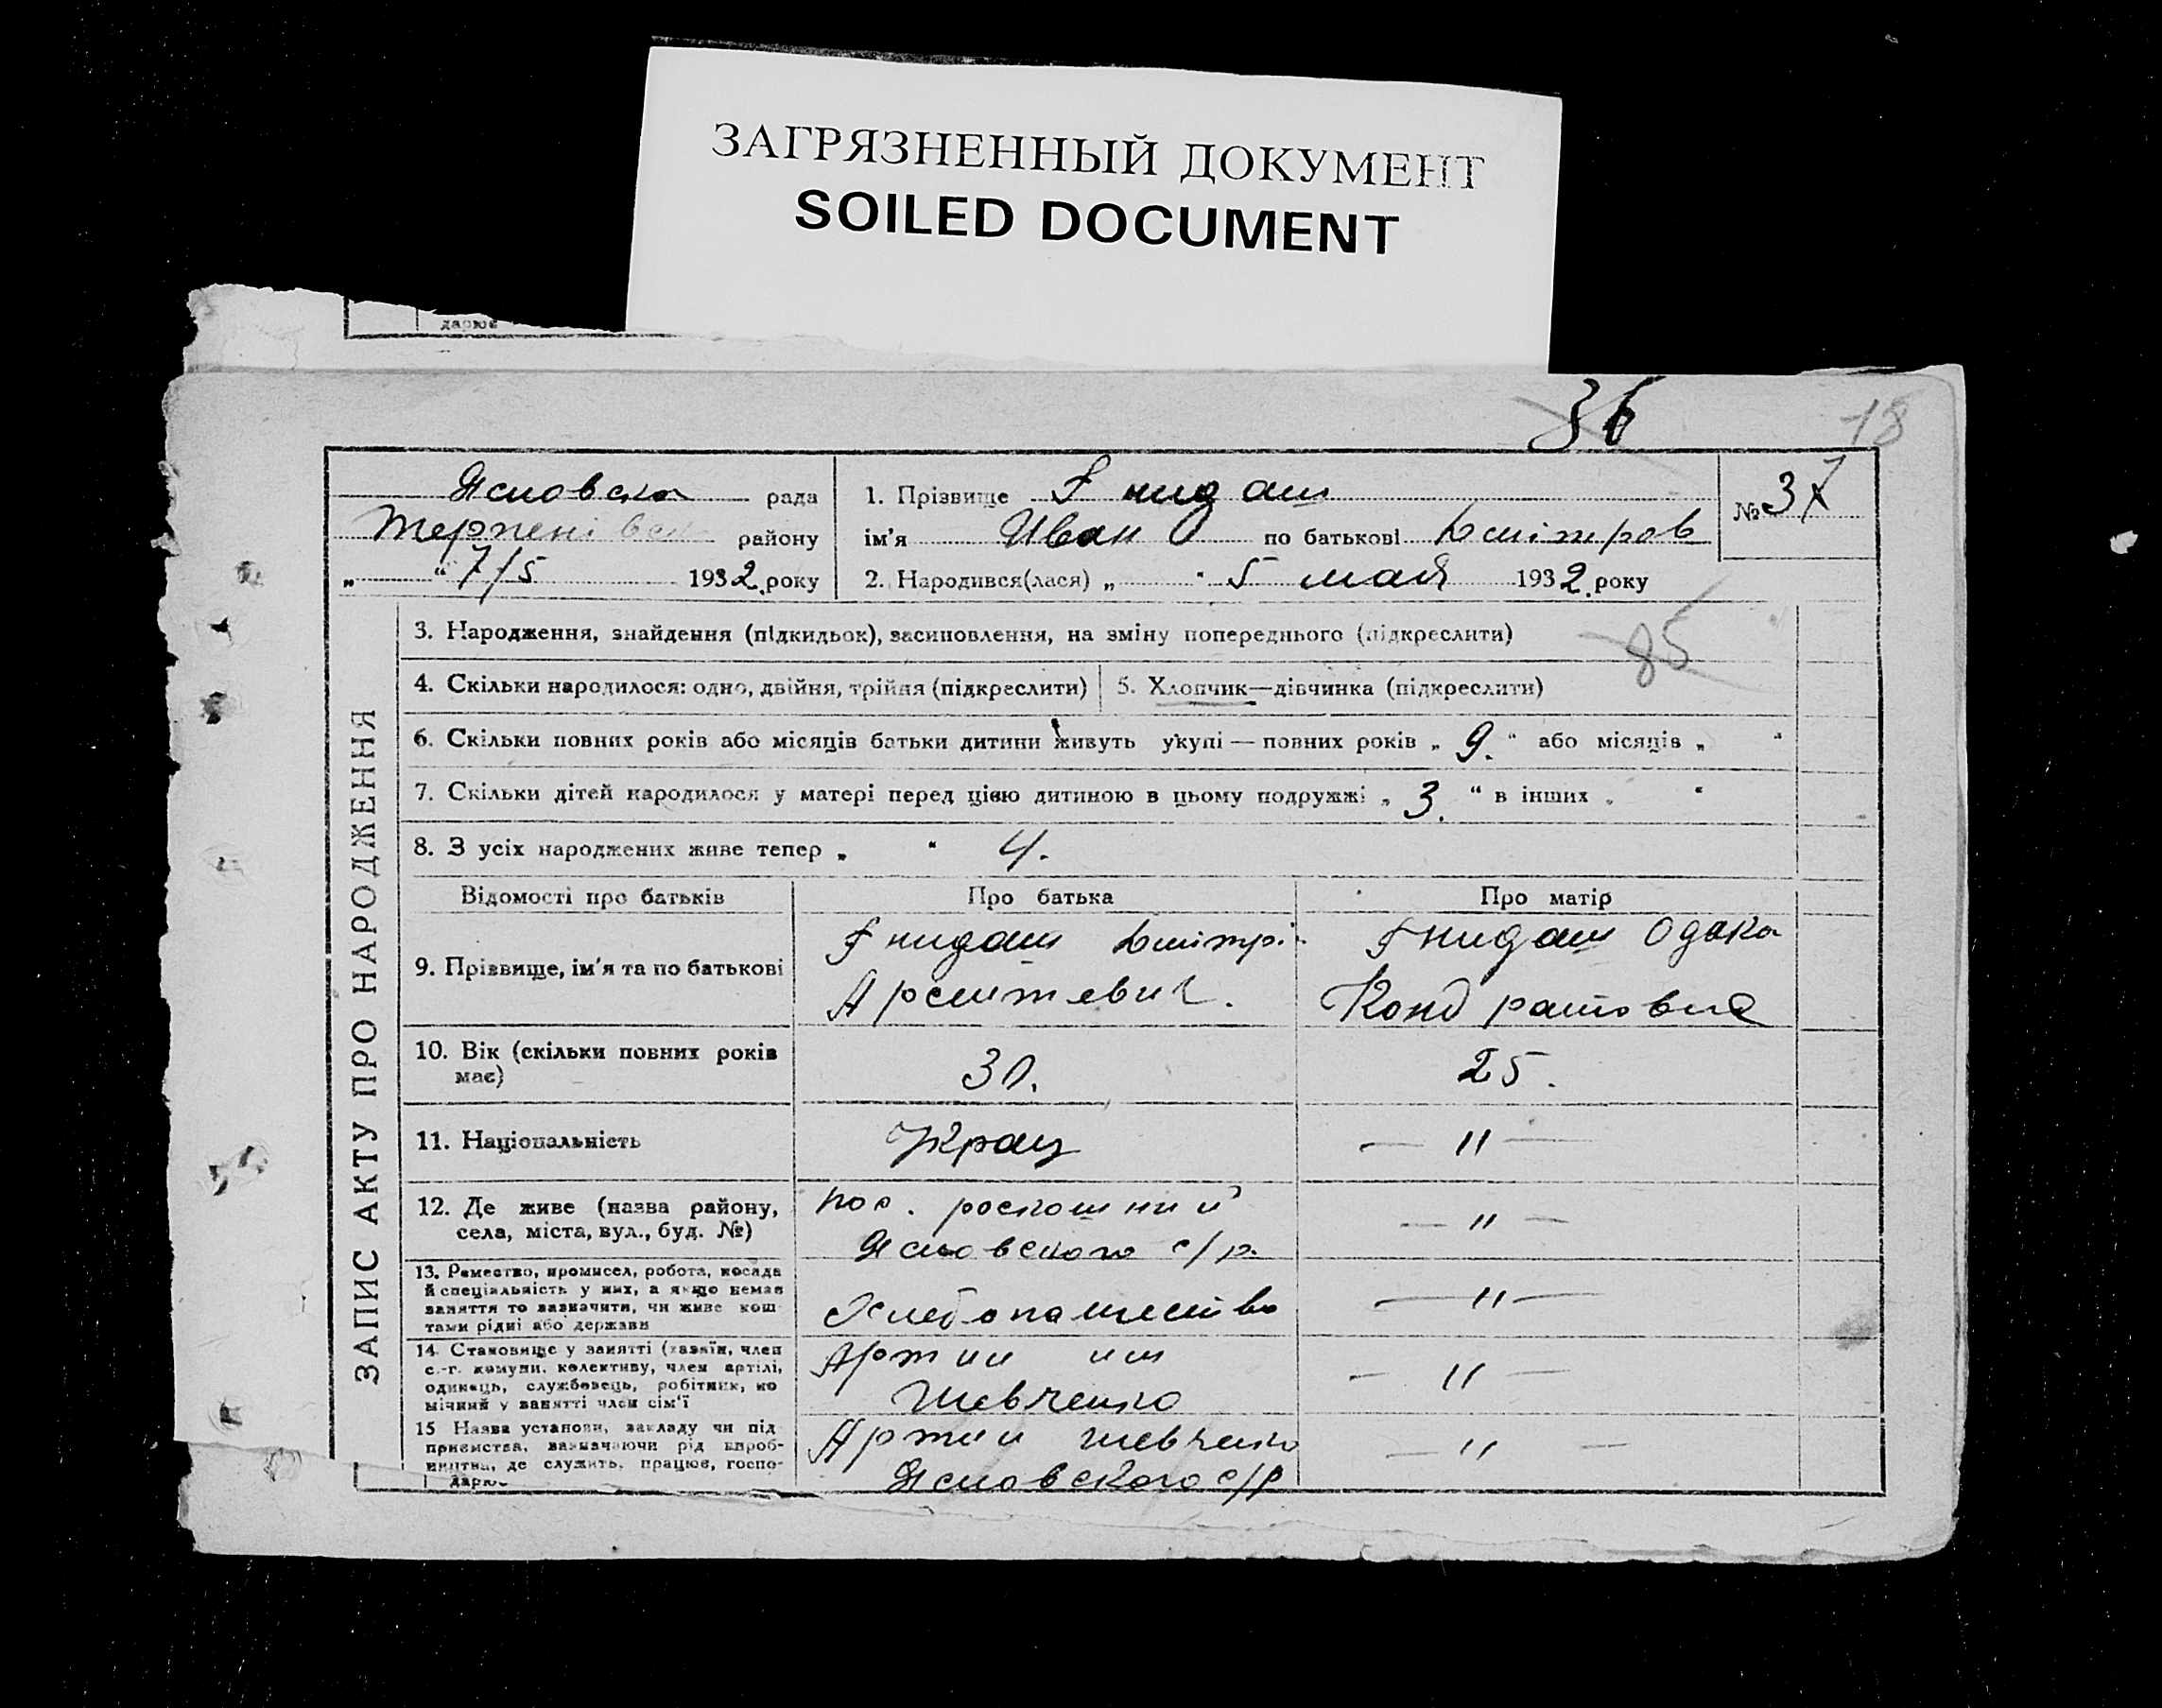 ЗАГРЯЗНЕННЫЙ ДОКУМЕНТ
SOILED DOCUMENT
дарює
36
18
Ясновска рада
Терпенівськ району
„ “ 7/5 1932. року
1. Прізвище Гнидаш
ім’я Иван по батькові Дмітров
2. Народився(лася) „ “ 5 мая 1932. року
№ 37
ЗАПИС АКТУ ПРО НАРОДЖЕННЯ
3. Народження, знайдення (підкидьок), засиновлення, на зміну попереднього (підкреслити)
85
4. Скільки народилося: одно, двійня, трійня (підкреслити)
5. Хлопчик—дівчинка (підкреслити)
6. Скільки повних років або місяців батьки дитини живуть укупі — повних років „ 9. “ або місяців „ “
7. Скільки дітей народилося у матері перед цією дитиною в цьому подружжі „ 3. “ в інших „ “
8. З усіх народжених живе тепер „ “ 4.
Відомості про батьків Про батька Про матір
9. Прізвище, ім’я та по батькові
Гнидаш Дмітрі
Гнидаш Одока
Кондратовна
10. Вік (скільки повних років
має)
30.
25.
11. Національність
Украц
— 〃 —
12. Де живе (назва району,
села, міста, вул., буд. №)
пос. роскошний
Ясновского с/р.
— 〃 —
13. Ремество, промисел, робота, посада
й спеціальність у них, а якщо немає
заняття то зазначити, чи живе кош-
тами рідні або держави
Хлебопашество
— 〃 —
14. Становище у занятті (хазяїн, член
с.-г. комуни, колективу, член артілі,
одинець, службовець, робітник, по-
мічний у занятті член сім’ї
Артии им
Шевченко
— 〃 —
15 Назва установи, закладу чи під-
приємства, зазначаючи рід вироб-
ництва, де служить, працює, госпо-
дарює
Артии Шевченко
Ясновского с/р
— 〃 —